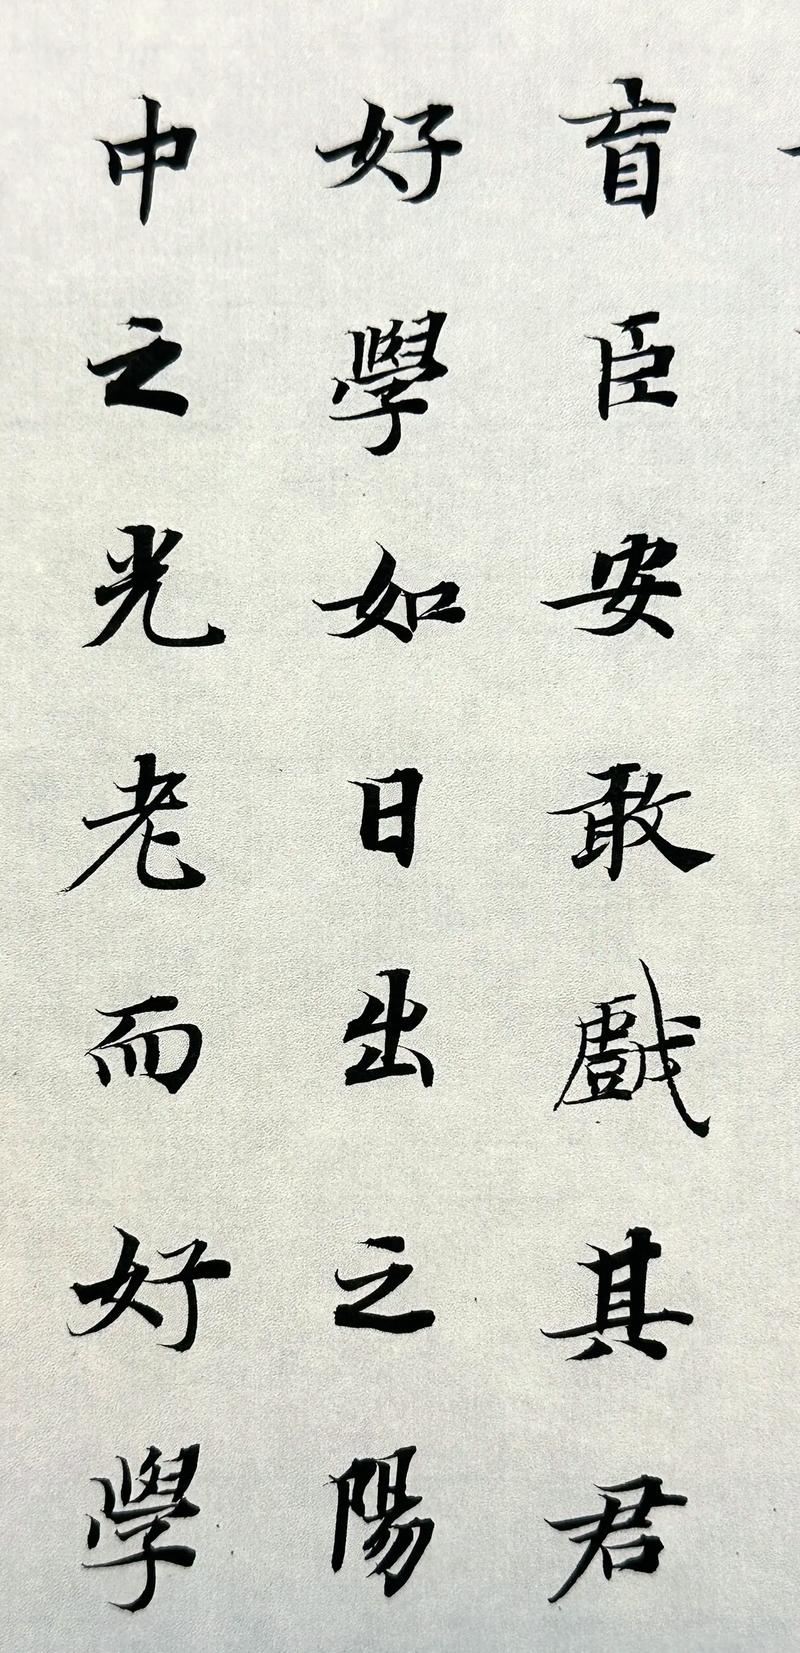 盲臣安敢戲其君
好學如日出之陽
中之光老而好學